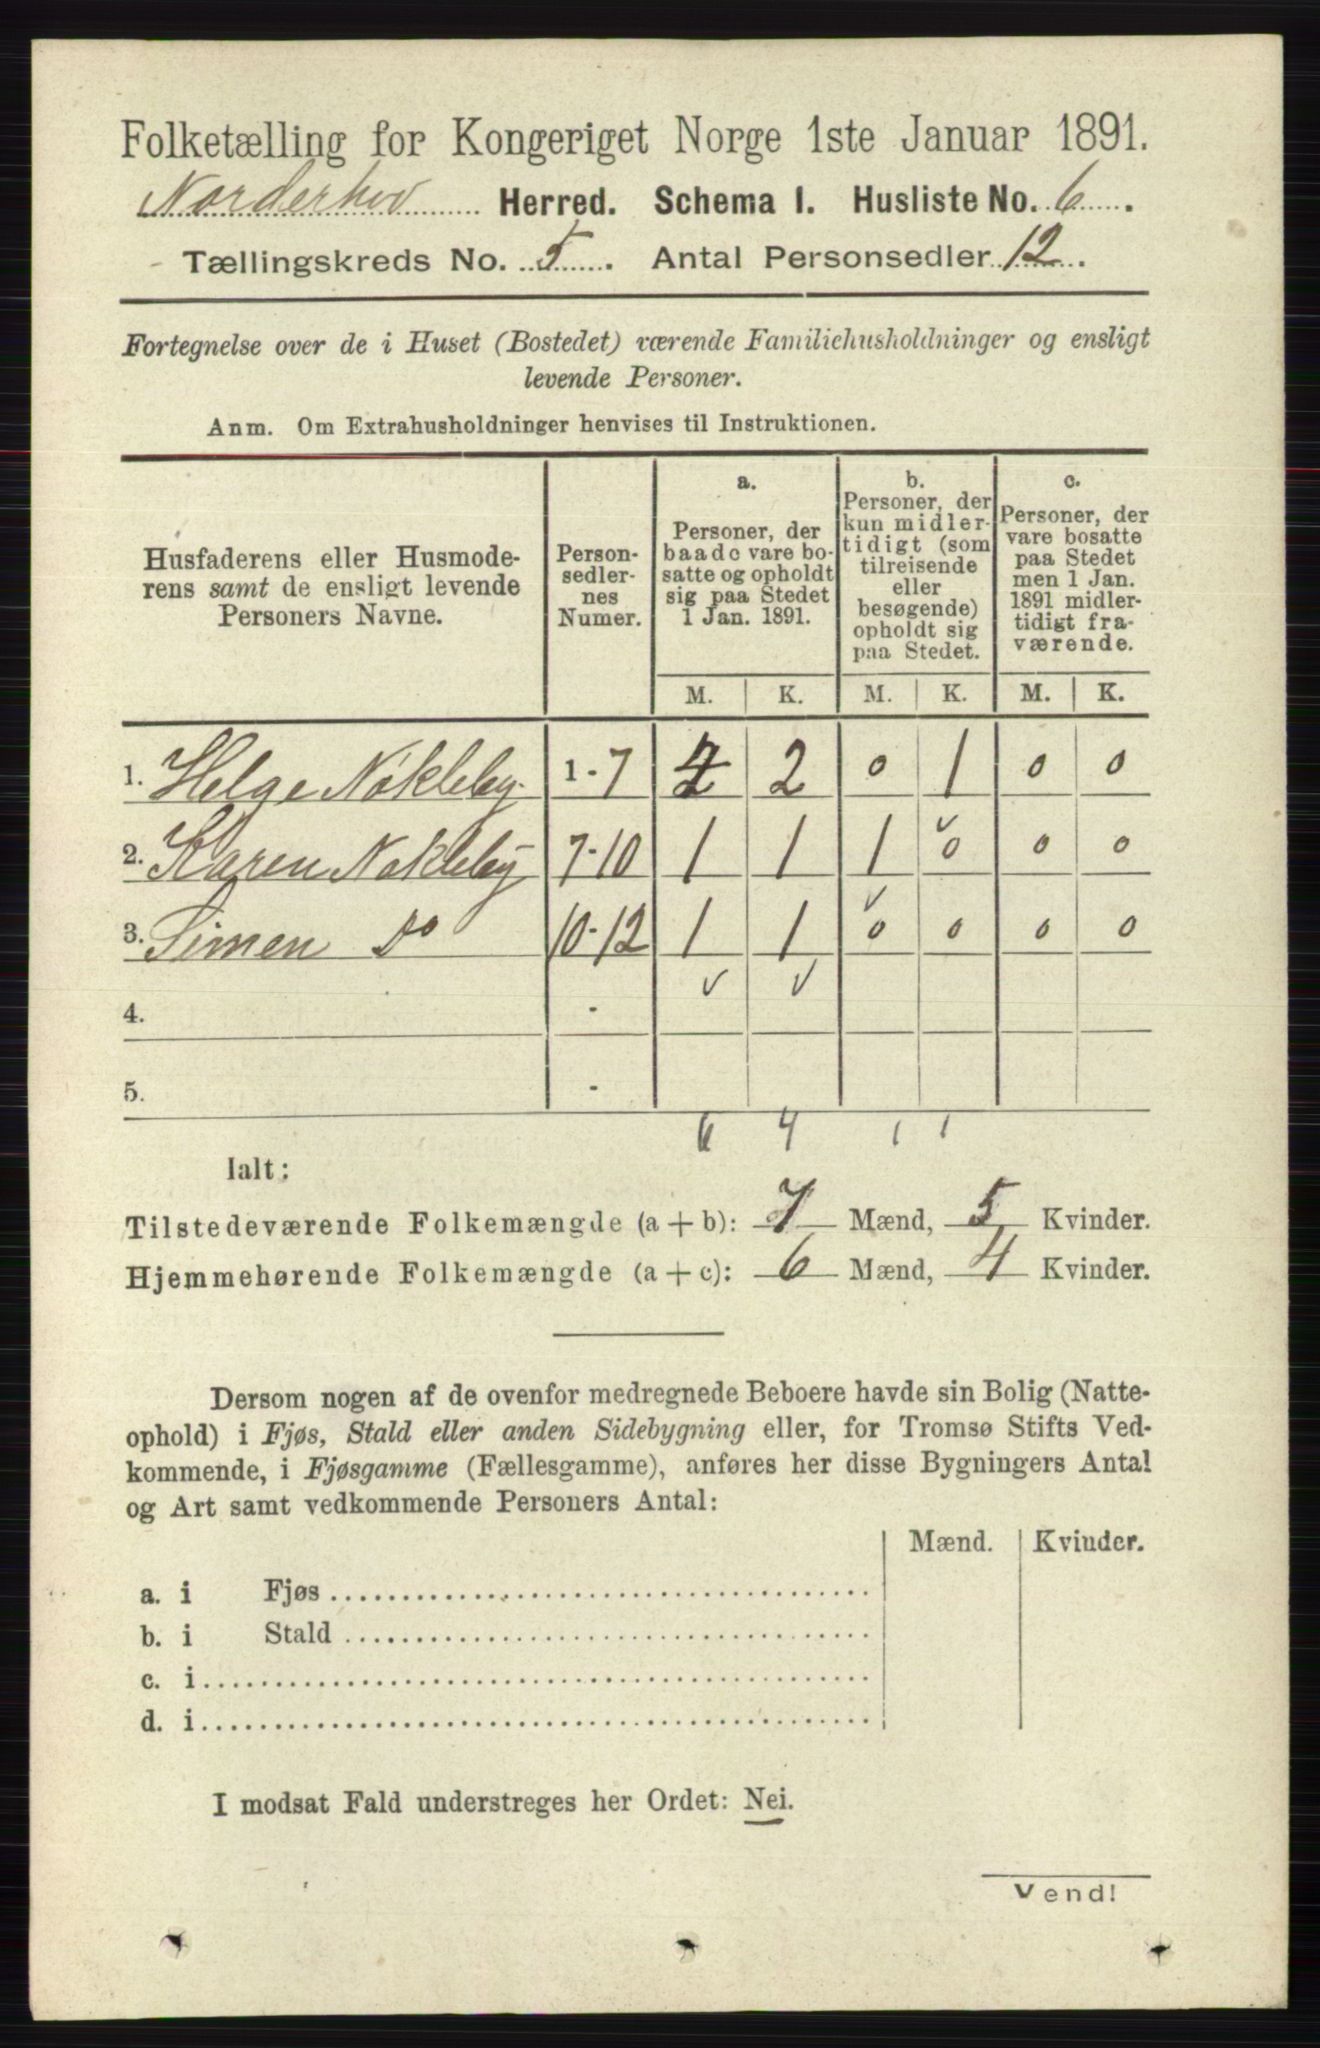 Folketælling for Kongeriget Norge 1ste Januar 1891.
Norderhov Herred. Schema I. Husliste No. 6.
Tællingskreds No. 5. Antal Personsedler 12.
Fortegnelse over de i Huset (Bostedet) værende Familiehusholdninger og ensligt
levende Personer.
Anm. Om Extrahusholdninger henvises til Instruktionen.
Husfaderens eller Husmode-
rens samt de ensligt levende
Personers Navne.
Person-
sedler-
nes
Numer.
a.
Personer, der
baade vare bo-
satte og opholdt
sig paa Stedet
1 Jan. 1891.
b.
Personer, der
kun midler-
tidigt (som
tilreisende
eller
besøgende)
opholdt sig
paa Stedet.
c.
Personer, der
vare bosatte
paa Stedet
men 1 Jan.
1891 midler-
tidigt fra-
værende.
M. K. M. K. M. K.
1. Helge Nokleby 1-7 4 2 0 1 0 0
2. Karen Nokleby 7-10 1 1 1 0 0 0
3. Simen Do 10-12 1 1 0 0 0 0
4. -
5. -
6 4 1 1
Ialt:
Tilstedeværende Folkemængde (a + b): 7 Mænd, 5 Kvinder.
Hjemmehørende Folkemængde (a + c): 6 Mænd, 4 Kvinder.
Dersom nogen af de ovenfor medregnede Beboere havde sin Bolig (Natte-
ophold) i Fjøs, Stald eller anden Sidebygning eller, for Tromsø Stifts Ved-
kommende, i Fjøsgamme (Fællesgamme), anføres her disse Bygningers Antal
og Art samt vedkommende Personers Antal:
Mænd. Kvinder.
a. i Fjøs
b. i Stald
c. i
d. i
I modsat Fald understreges her Ordet: Nei.
Vend!